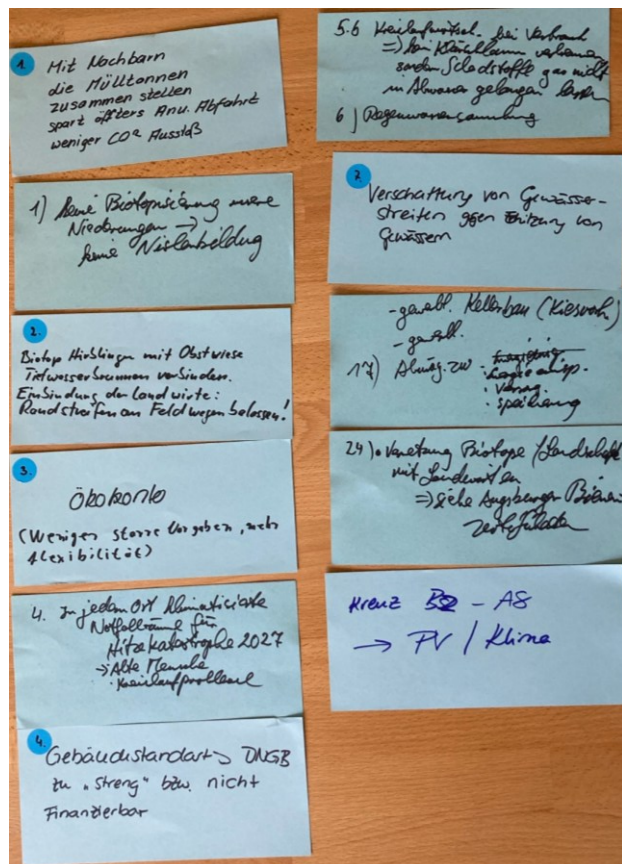 1.
Mit Nachbarn
die Mülltonnen
zusammen stellen
spart öffters Anu. Abfahrt
weniger CO² Ausstoß
1) keine Biotopisierung
Niederungen →
keine
2.
Biotop Hirblingen mit Obstwiese
Tiefwasserbrunnen verbinden.
Einbindung der Landwirte:
Randstreifen an Feldwegen belassen!
3.
Ökokonto
(Weniger starre Vorgaben, mehr
Flexibilität)
4. In jedem Ort klimatisierte
Notfallräume für
Hitzekatastrophe 2027
→ Alte Mensche
· Kreislaufprobleme
4.
Gebäudestandart → DNGB
zu "streng" bzw. nicht
Finanzierbar
5.6 Kreislaufwirtsch. bei Verbrauch
=> bei Klärschlamm verbrennen
sondern Schadstoffe gar nicht
in Abwasser gelangen lassen
6) Regenwassersammlung
7.
Verschattung von Gewässer-
streifen gegen Erhitzung von
Gewässern
- gewerbl. Kellerbau (Kieswohn)
- gewerbl.
17)
·
· Versorg.
· Speicherung
24) • Vernetzung Biotope / Landschaft
mit Landwirten
=> siehe Augsburger Bienen
zertifikaten
Kreuz B2 - A8
→ PV / Klima